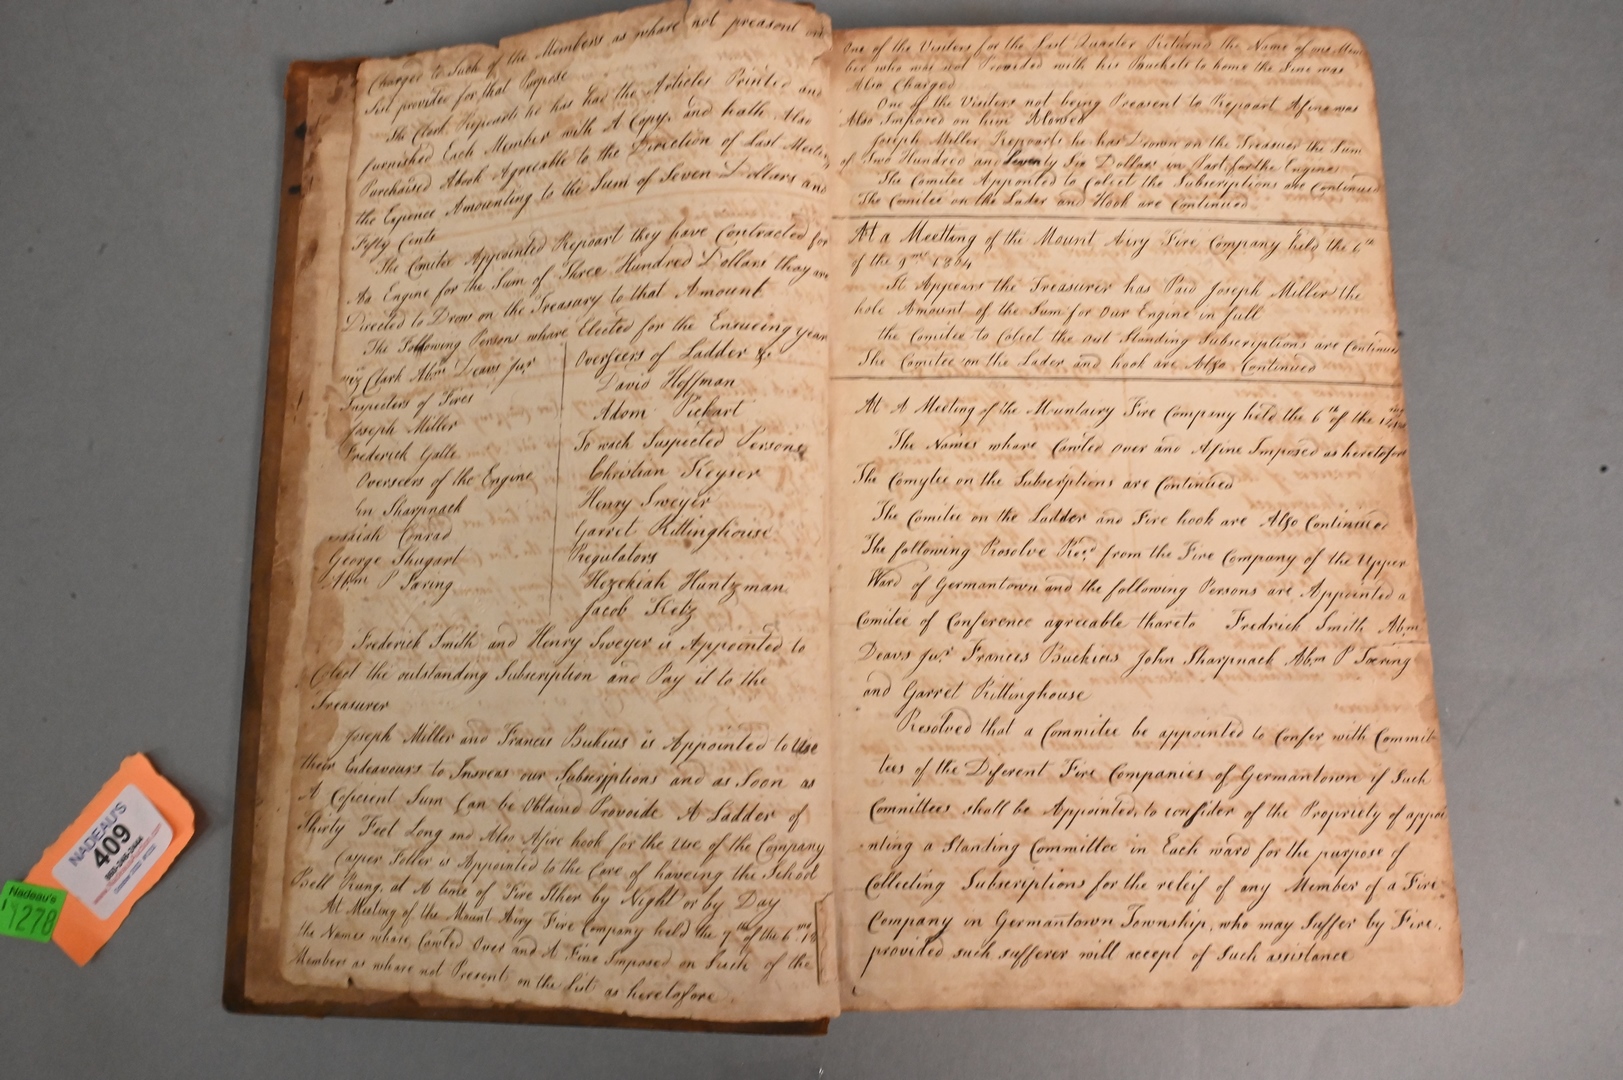 Charged to Such of the Members as whare not preasent on
List provided for that Purpose
The Clark Repoarts he has had the Articles Printed and
furnished Each Member with A Copy, and hath Also
Purchaised Abook Agreeable to the Direction of Last Meeting
the Expence Amounting to the Sum of Seven Dollars and
Fifty Cents
The Comitee Appointed Repoart they have Contracted for
An Engine for the Sum of Three Hundred Dollars they are
Directed to Drow on the Treasury to that Amount
The Following Persons whare Elected for the Ensueing year
viz Clark Abm Deavs Junr
Inspecters of Fires
Joseph Miller
Frederick Galte
Overseers of the Engine
Jn Sharpnack
Isaiah Conrad
George Shugart
Abm P Saring
Overseers of Ladder &c
David Hoffman
Adam Pickart
To wach Suspected Persons
Christian Keyser
Henry Sweyer
Garret Rittinghouse
Regulators
Hezekiah Huntzman
Jacob Ketz
Frederick Smith and Henry Sweyer is Appointed to
Clect the outstanding Subscription and Pay it to the
Treasurer
Joseph Miller and Francis Bukius is Appointed to Use
their Endeavours to Insreas our Subscriptions and as Soon as
A Coficient Sum Can be Obtaind Provoide A Ladder of
Thirty Feet Long and Also Afire hook for the Use of the Company
Casper Feller is Appointed to the Care of haveing the School
Bell Rung, at A time of Fire Ither by Night or by Day
At Meeting of the Mount Airy Fire Company held the 7th of the 6 mo 18
the Names whare Cawled Over and A Fine Imposed on Such of the
Members as whare not Present on the List as heretofore
One of the Visiters for the Last Quarter Returnd the Name of one Mem
ber who was not Provided with his Buckets to home the Fine was
Also Charged
One of the Visiters not being Preasent to Repoart Afine was
Also Imposed on him Alowed
Joseph Miller Repoarts he has Drown on the Treasuer the Sum
of Two Hundred and Seventy Six Dollars in Part for the Engine
The Comitee Appointed to Colect the Subscriptions are Continued
The Comitee on the Lader and Hook are Continued
At a Meetting of the Mount Airy Fire Company held the 6th
of the 9mo 1804
It Appears the Treasurer has Paid Joseph Miller the
hole Amount of the Sum for Our Engine in full
the Comitee to Colect the out Standing Subscriptions are Continued
The Comitee on the Lader and hook are Also Continued
At A Meeting of the Muntairy Fire Company held the 6th of the
The Names whare Cawled over and Afine Imposed as heretofore
The Comytee on the Subscriptions are Continued
The Comitee on the Ladder and Fire hook are Also Continued
The following Resolve Recd from the Fire Company of the Upper
Ward of Germantown and the following Persons are Appointed a
Comitee of Conference agreeable thareto Fredrick Smith Abm
Deavs Junr Frances Buckius John Sharpnack Abm P Soering
and Garret Rittinghouse
Resolved that a Commitee be appointed to Confer with Commit
tees of the Diferent Fire Companies of Germantown if Such
Committees shall be Appointed, to consider of the Propriety of appoi
nting a Standing Committee in Each ward for the purpose of
Collecting Subscriptions for the releif of any Member of a Fire
Company in Germantown Township, who may Suffer by Fire,
provided such sufferer will accept of Such assistance
NADEAU'S
409
Nadeau's
1278